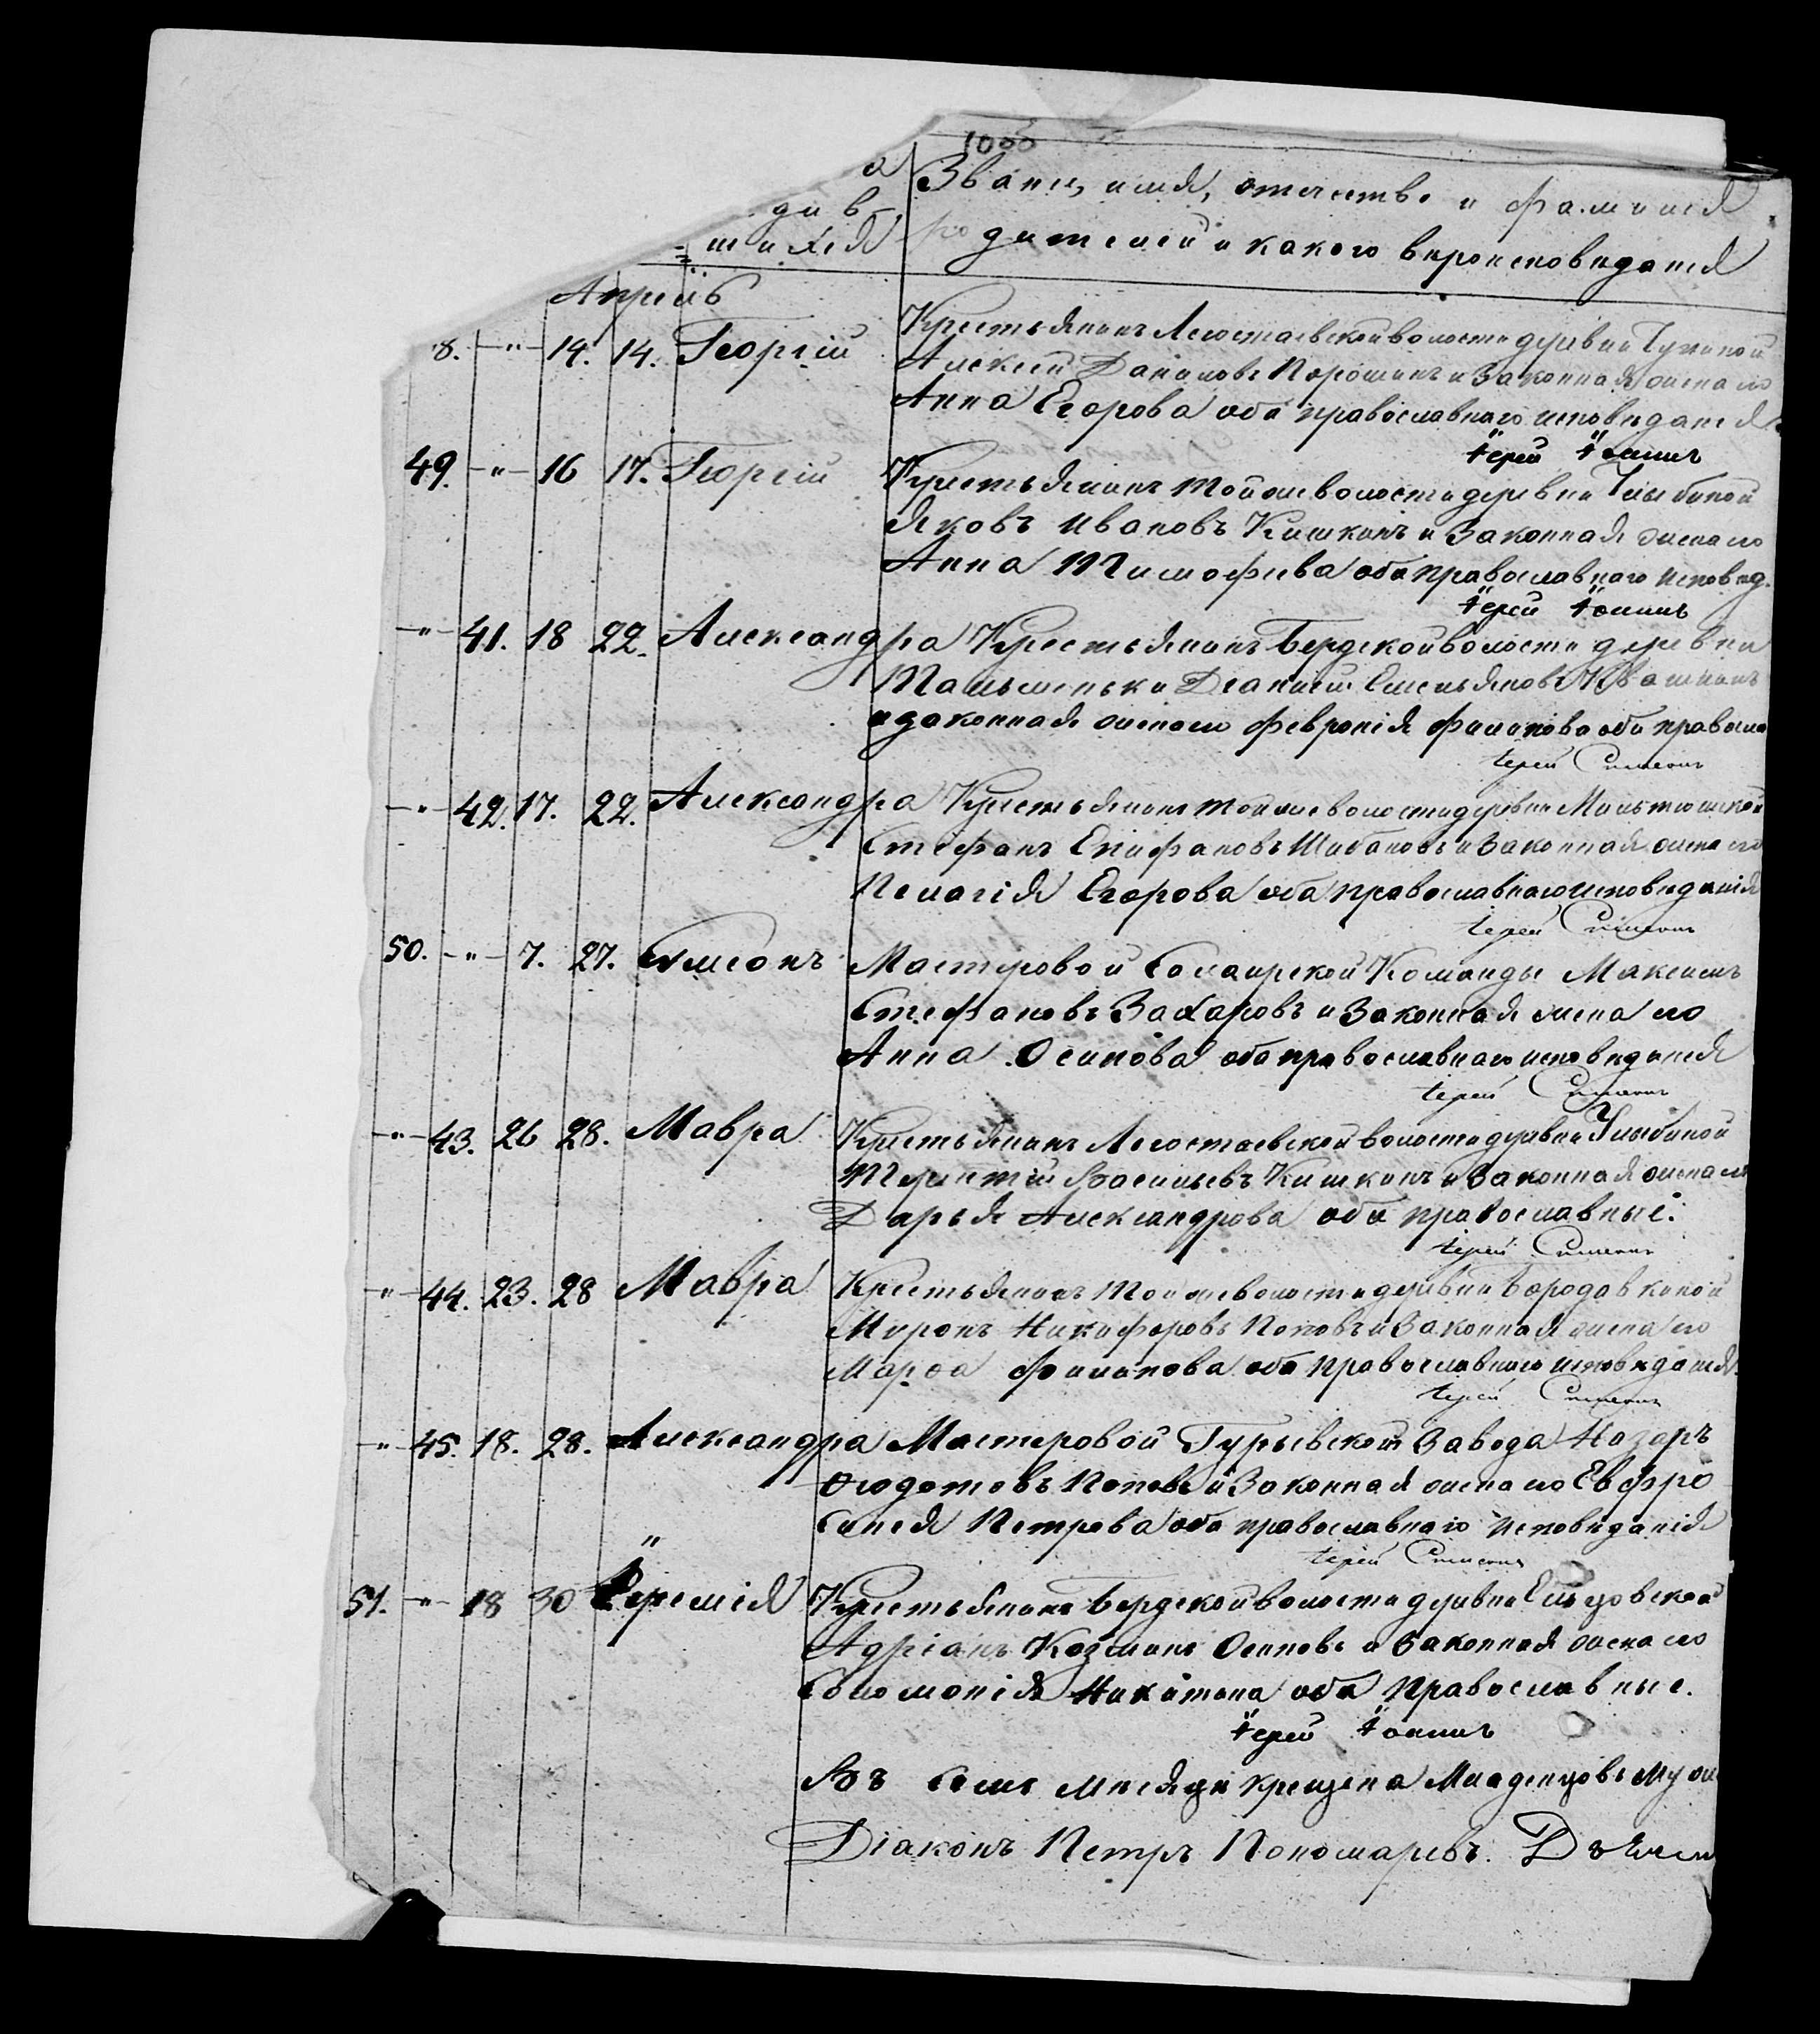 Званіе, имя, отчество и фамилія
родителей и какого вѣроисповѣданія
Апрель
8. -"- 14. 14. Георгій Крестьянинъ Легостаевской волости деревни
Алексей Даниловъ Порошинъ и законная жена его
Анна Егорова оба православнаго исповѣданія.
Іерей Іоаннъ
49. -"- 16 17. Георгій Крестьянинъ той же волости деревни Улыбиной
Яковъ Ивановъ Кишкинъ и законная жена его
Анна Тимофеева оба православнаго исповѣд.
Іерей Іоаннъ
-"- 41. 18 22. Александра Крестьянинъ Бердской волости деревни
Тальменьки Емельяновъ Квашнинъ
и законная жена его Февронія Филипова оба правосла
Іерей Симеонъ
-"- 42. 17. 22. Александра Крестьянинъ той же волости деревни Мильтюшской
Стефанъ Епифановъ Шибановъ и законная жена его
Пелагія Егорова оба православнаго исповѣданія
Іерей Симеонъ
50. -"- 7. 27. Симеонъ Мастеровой Салаирской Команды Максимъ
Стефановъ Захаровъ и законная жена его
Анна Осипова оба православнаго исповѣданія
Іерей Симеонъ
-"- 43. 26 28. Мавра Крестьянинъ Легостаевской волости деревни Улыбиной
Терентій Васильевъ Кишкинъ и законная жена его
Дарья Александрова оба православные.
Іерей Симеонъ
" 44. 23. 28 Мавра Крестьянинъ той же волости деревни Бородавкиной
Миронъ Никифоровъ Поповъ и законная жена его
Марѳа Филипова оба православнаго исповѣданія.
Іерей Симеонъ
-"- 45. 18. 28. Александра Мастеровой Гурьевскаго Завода Назаръ
Ѳедотовъ Поповъ и законная жена его Евфро
синія Петрова оба православнаго исповѣданія
Іерей Симеонъ
51. -"- 18 30 Іеремія Крестьянинъ Бердской волости деревни Ельцовской
Адріанъ Козминъ Осиповъ и законная жена его
Соломонія Никитина оба православные.
Іерей Іоаннъ
Въ семъ месяцѣ крещена младенцовъ муж
Діаконъ Петръ Пономаревъ.